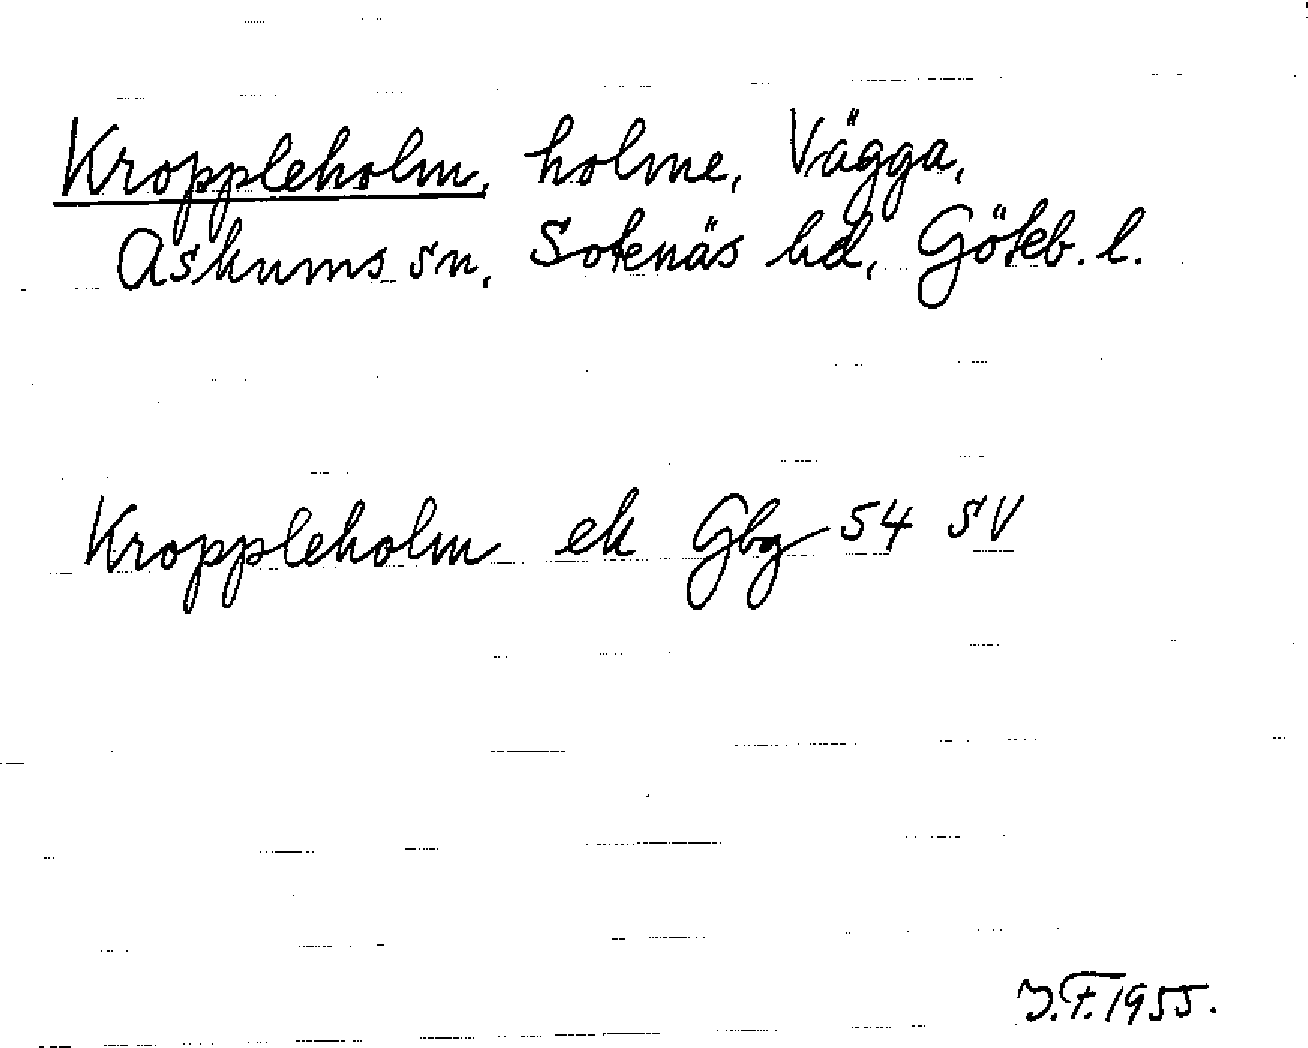 Kroppleholm, holme, Vägga,
Askums sn, Sotenäs hd, Göteb. l.
Kroppleholm ek Gbg 54 SV
J.F. 1955.